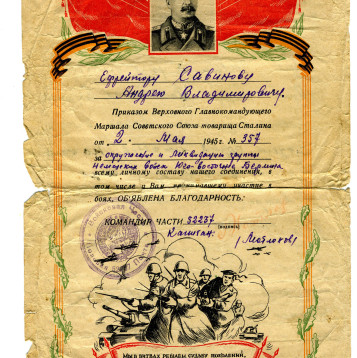 Ефрейтору Савинову
Андрею Владимировичу.
Приказом Верховного Главнокомандующего
Маршала Советского Союза товарища Сталина
от 2. Мая 1945 г. № 357
за окружение и ликвидацию группы
Немецких войск Юго-Восточнее Берлина
всему личному составу нашего соединения, в
том числе и Вам, принимавшему участие в
боях, ОБ'ЯВЛЕНА БЛАГОДАРНОСТЬ.
КОМАНДИР ЧАСТИ 33237
(подпись)
Капитан:
МЫ В БИТВАХ РЕШАЕМ СУДЬБУ ПОКОЛЕНИЙ,